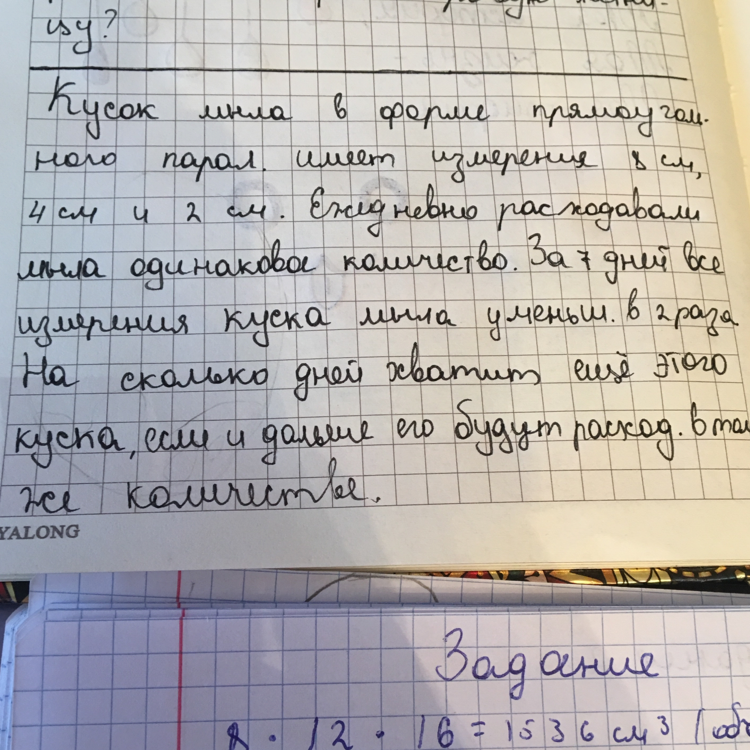 изу?
Кусок мыла в форме прямоугол.
ного парал. имеет измерения 8 см,
4 см и 2 см. Ежедневно расходавали
мыла одинаковое количество. За 7 дней все
измерения куска мыла уменьш. в 2 раза
На сколько дней хватит ещё этого
куска, если и дальше его будут расход. в том
же количестве.
YALONG
Задание
8 · 12 · 16 = 1536 см³ (